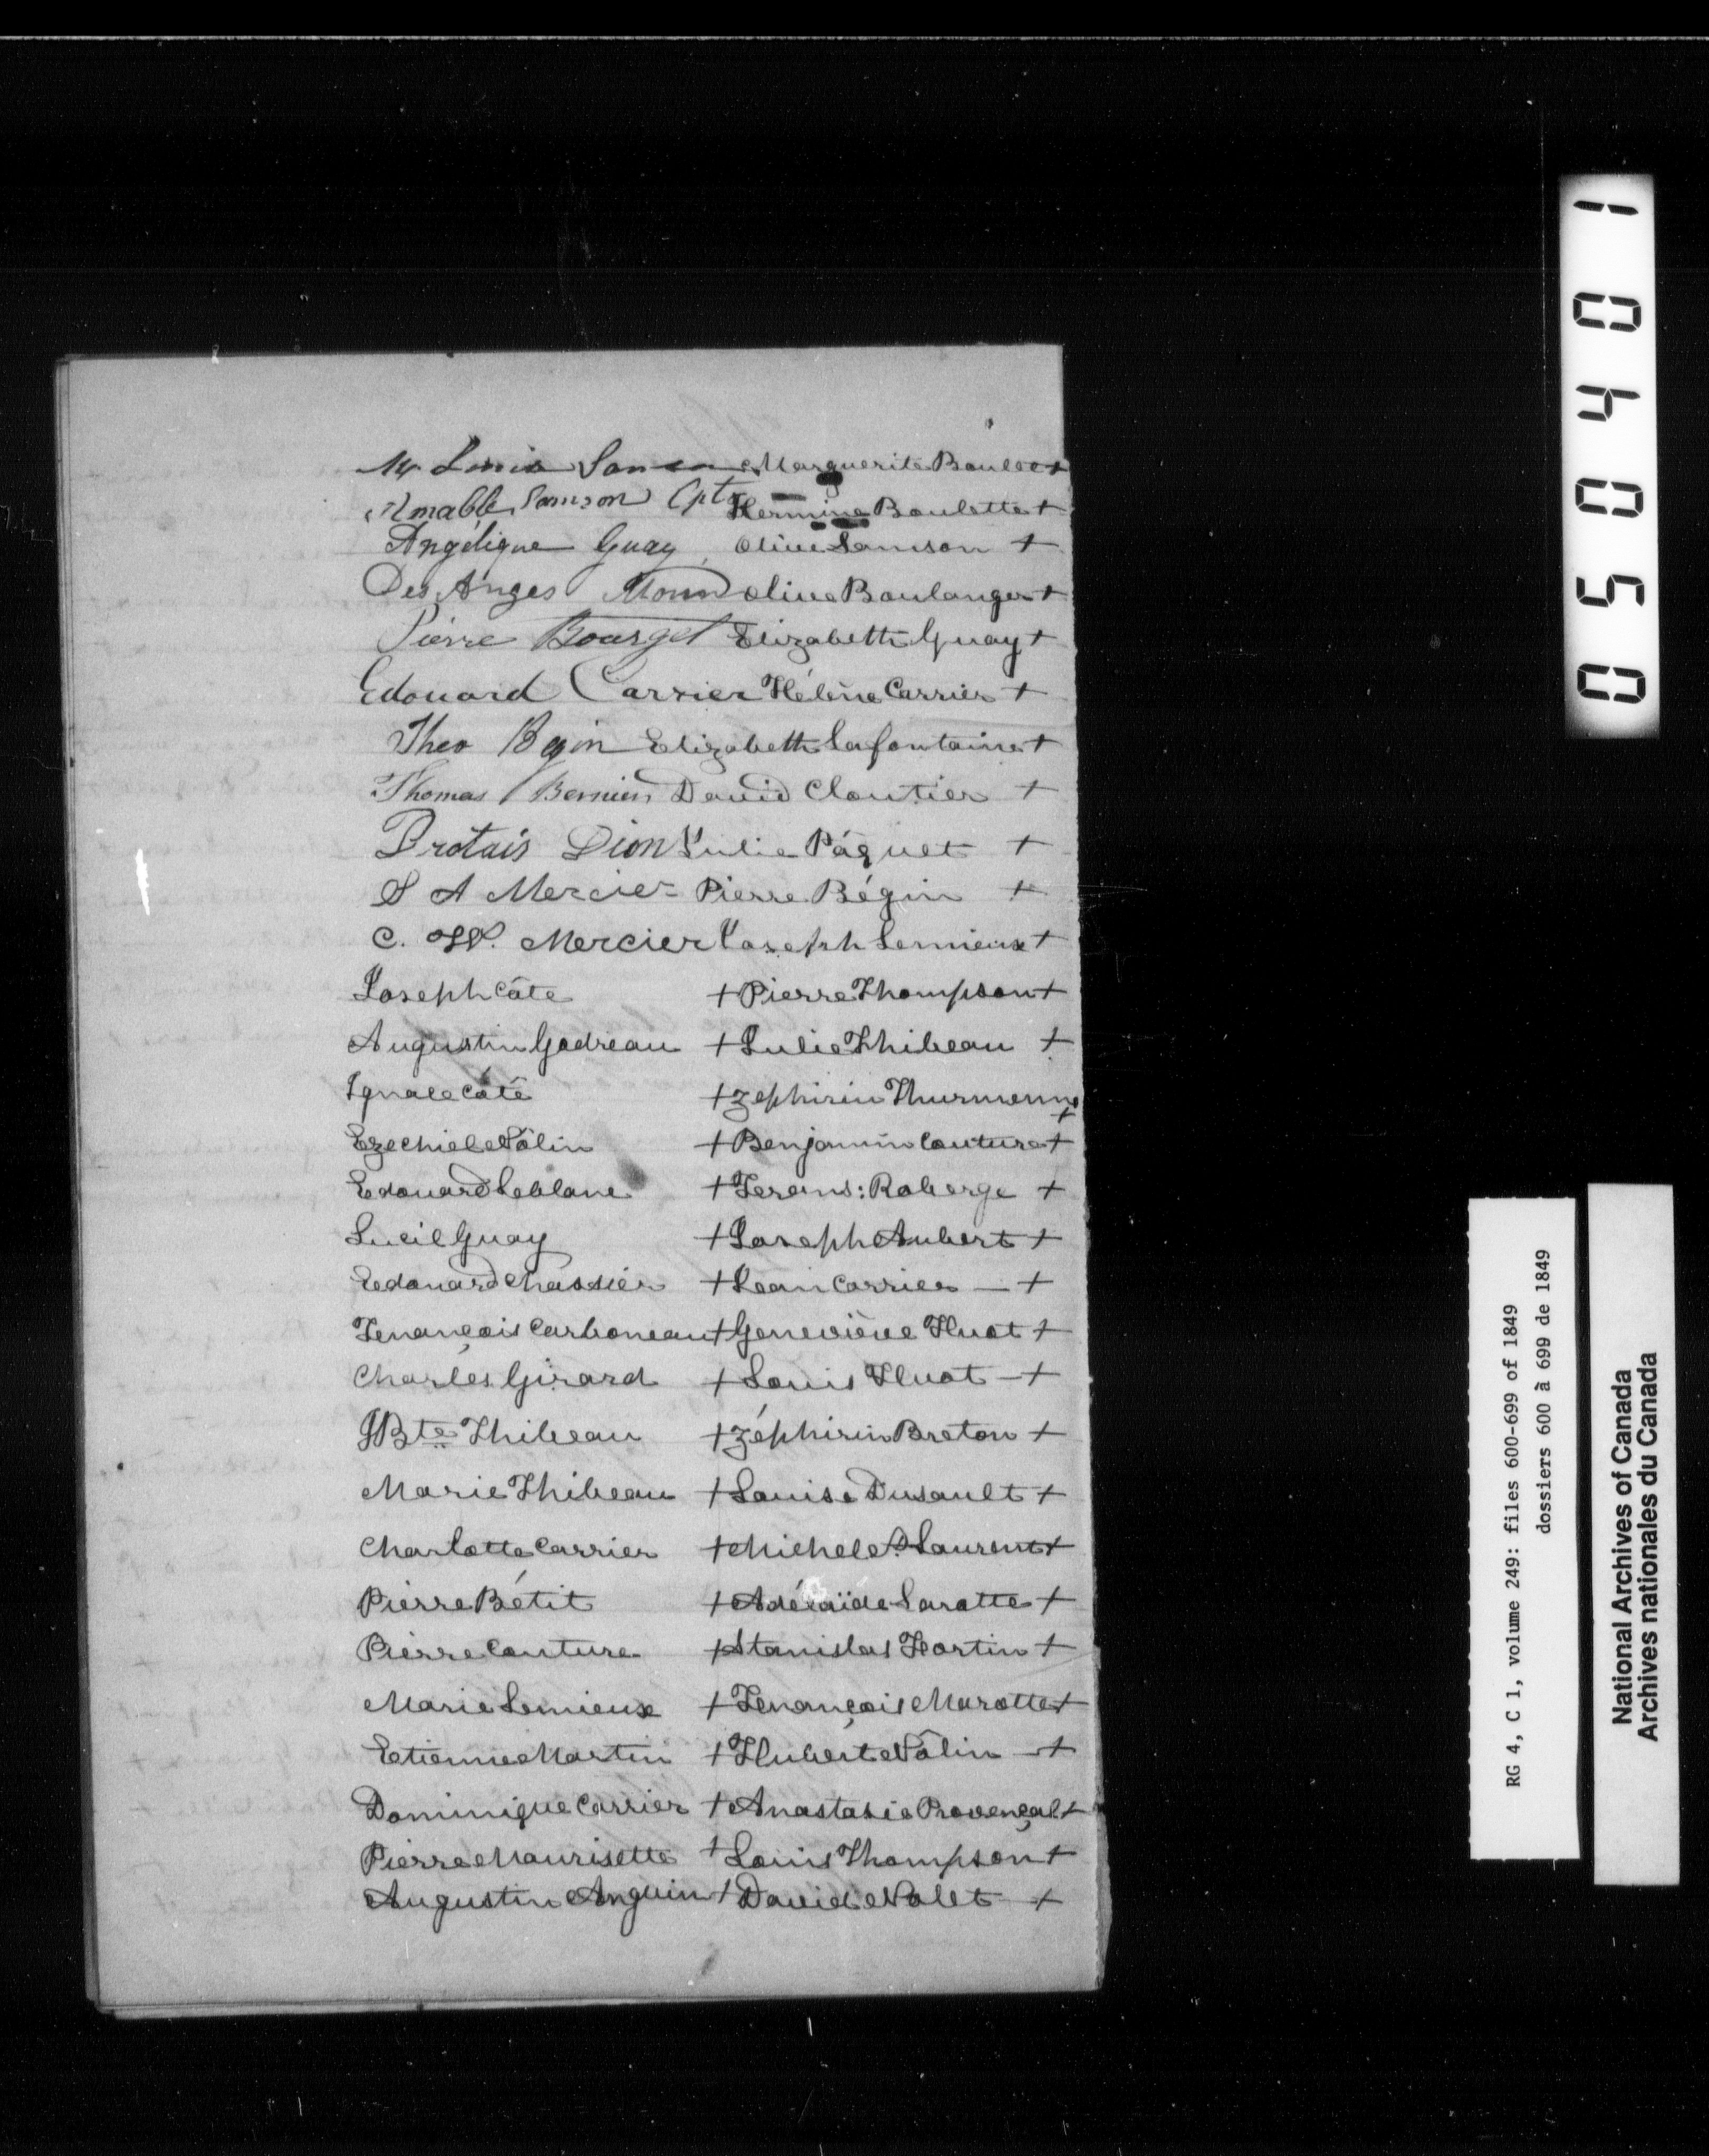 Mr Louis Marguerite Boulet+
Amable Samson Cpt Hermine Boulette+
Angélique Guay Olive Samson +
Des Anges Morin Olive Boulanger+
Pierre Bourget Elizabeth Guay+
Edouard Carrier Hélène Carrier +
Theo Begin Elizabeth Lafontaine+
Thomas Bernier David Cloutier +
Protais Dion Julie Páquet +
S A Mercier Pierre Bégin +
C. W. Mercier Joseph Lemieux+
Joseph Côte + Pierre Thompson+
Augustin Godreau + Julie Thibeau +
Ignace Côté + Zephirin +
Ezechiel Nolin + Benjamin Couture+
Edouard Leblanc + Frans: Roberge +
Lucil Guay + Joseph Aubert +
Edouard Chassier + Jean Carrier — +
François Carboneau + Geneviève Huot +
Charles Girard + Louis Huot — +
JBte Thibeau + Zéphirin Breton +
Marie Thibeau + Louise Dusault +
Charlotte Carrier + Michel St Laurent+
Pierre Bétit + Adélaïde Laratte +
Pierre Couture + Stanislas Fortin +
Marie Lemieux + François Marotte+
Etienne Martin + Hubert Nolin — +
Dominique Carrier + Anastasie Provençal+
Pierre Maurisette + Louis Thompson+
Augustin Anguin + David Nolet +
050401
RG 4, C 1, volume 249: files 600-699 of 1849
dossiers 600 à 699 de 1849
National Archives of Canada
Archives nationales du Canada